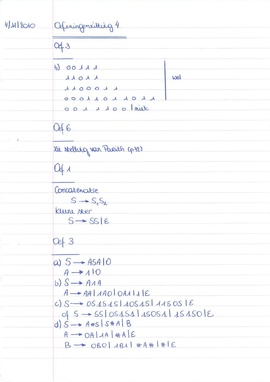 4/11/2010 Oefeningenzitting 4
Oef 3
b) 0 0 1 1 1
1 1 0 1 1
wel
1 1 0 0 0 1 1
0 0 0 1 0 1 1 0 1 1
0 0 1 1 0 0 | niet
Oef 6
zie stelling van Parikh
Oef 1
Concatenatie
S → S₁S₂
Kleene ster
S → SS|ε
Oef 3
a) S → ASA|0
A → 1|0
b) S → A1A
A → AA|1A0|0A1|1|ε
c) S → 0S1S1S|1S0S1S|1S1S0S|ε
of S → SS|0S1S1|1S0S1|1S1S0|ε
d) S → A#S|S#A|B
A → 0A|1A|#A|ε
B → 0B0|1B1|#A#|#|ε